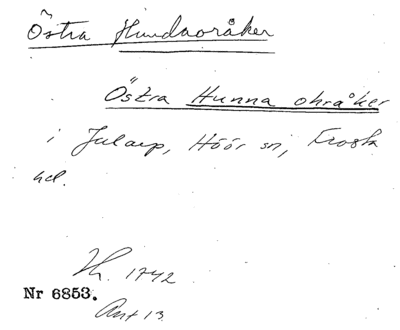 Östra Hundaoråker
Östra Hunna ohråker
i Julaup, Höör sn, Frosta
hd.
Lh. 1742
Nr 6853.
Ant 13